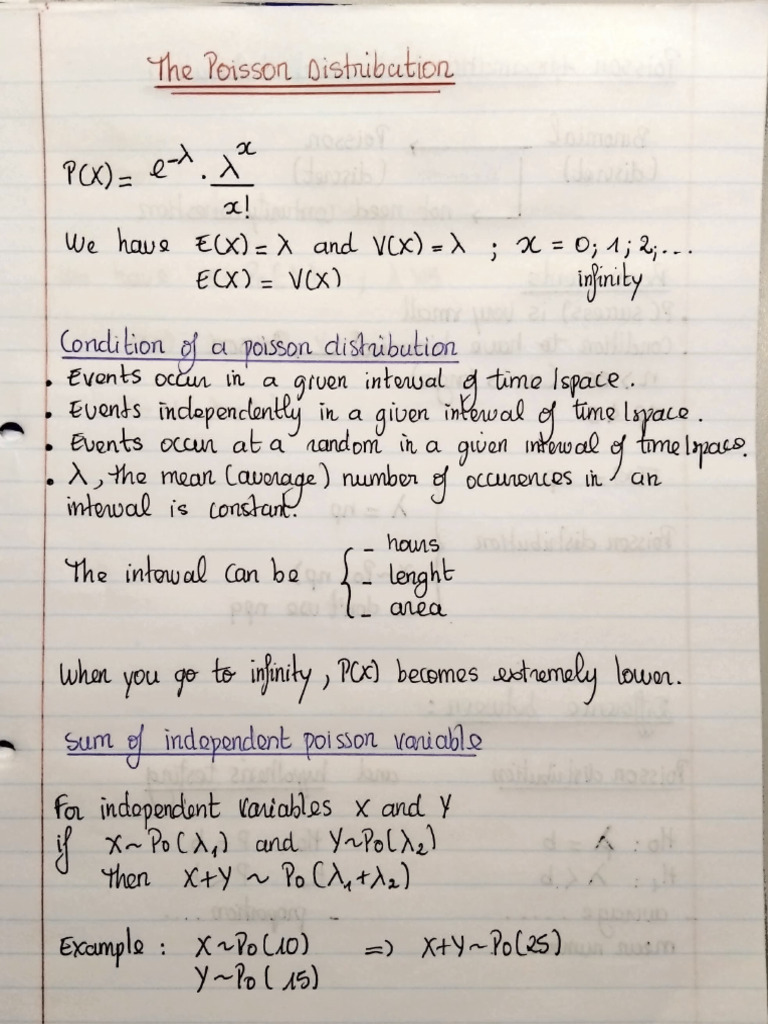 The Poisson Distribution
P(X) = e^-λ . λ^x / x!
We have E(X) = λ and V(X) = λ ; x = 0; 1; 2; ...
E(X) = V(X) infinity
Condition of a poisson distribution
. Events occur in a given interval of time/space.
. Events independently in a given interval of time/space.
. Events occur at a random in a given interval of time/space.
. λ, the mean (average) number of occurences in an
interval is constant.
The interval can be { - hours
- lenght
- area
When you go to infinity, P(X) becomes extremely lower.
Sum of independent poisson variable
For independent variables X and Y
if X~Po(λ₁) and Y~Po(λ₂)
then X+Y ~ Po(λ₁+λ₂)
Example : X~Po(10) => X+Y~Po(25)
Y~Po(15)